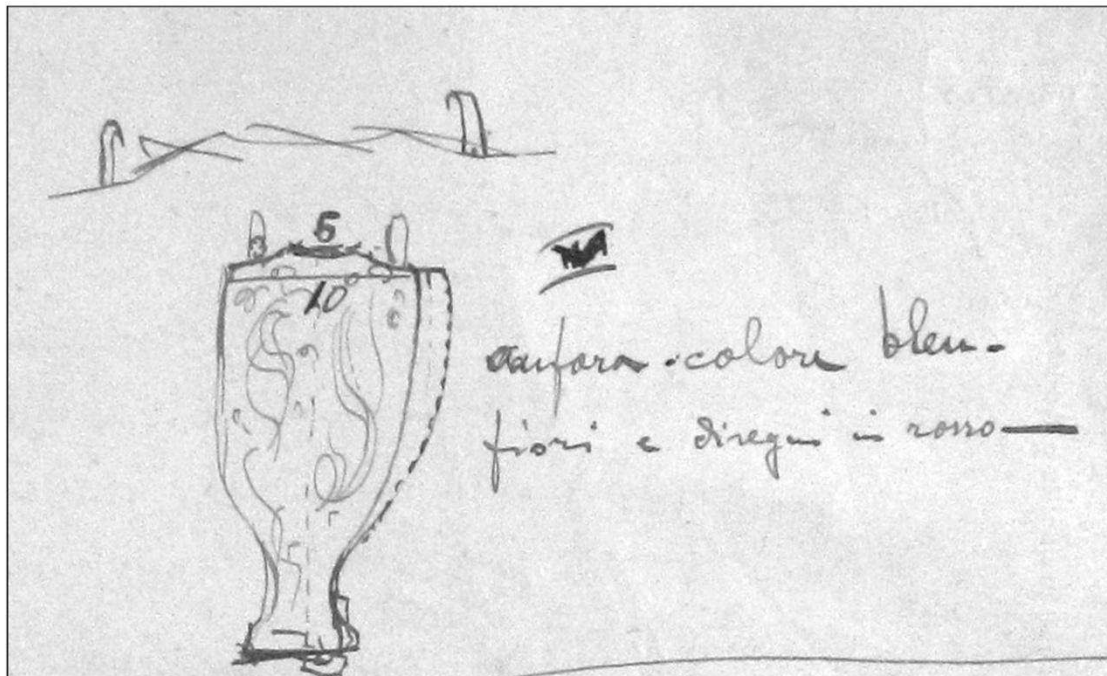 5
10
anfora - colore bleu -
fiori e disegni in rosso —